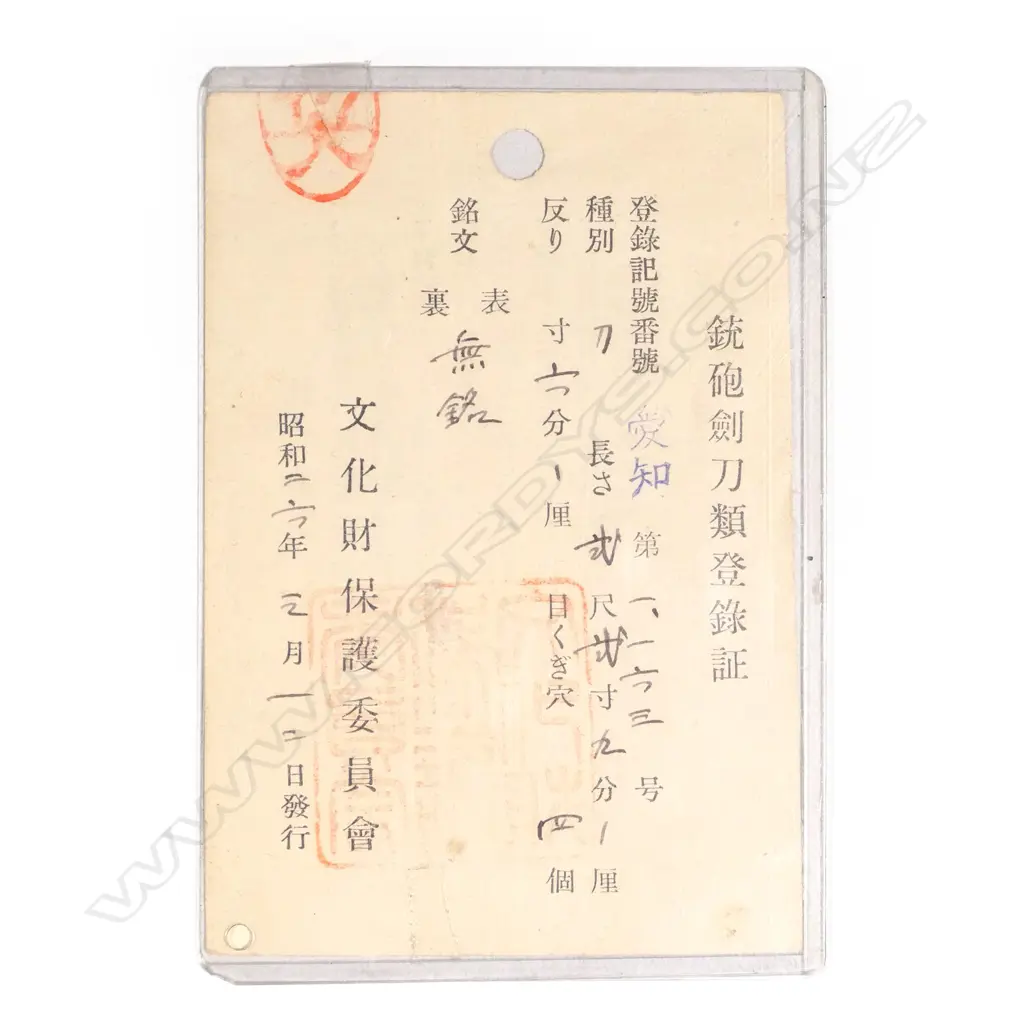 銃砲劍刀類登錄証
登錄記號番號 愛知 第 一、一六三 号
種別 刀 長さ 弐 尺 弐 寸 九 分 厘
反り 寸 六 分 厘 目くぎ穴 四 個
銘文 表 裏 無銘
文化財保護委員會
昭和二六年三月一二日發行
WWW.CORDYS.CO.NZ